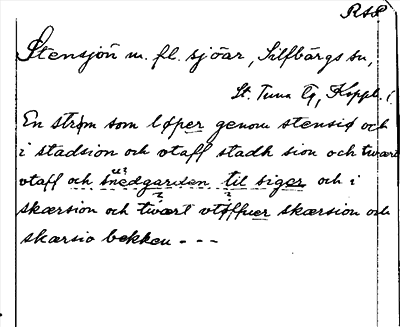 RAP
Stensjön m. fl. sjöar, Silfbärgs sn,
St. Tuna Tg, Koppb. l.
En strøm som løper genom stensiø och
i stadsion och vtaff stadh sion och twært
vtaff och snedgarden til siger och i
skærsion och twært vtøffuer skærsion och
skærsio bekken - - -